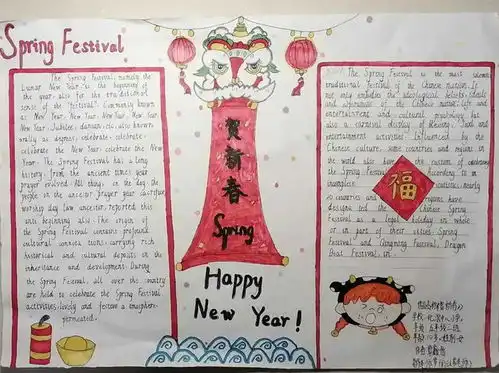 Spring Festival
The Spring Festival, namely the
Lunar New Year, is the beginning of
the year, also for the traditional
sense of the "festival". Commonly known
as New Year, New Year, New Year, New
New Year, Jubilee, also known
orally as degrees, celebrate, celebrate,
celebrate the New Year, celebrate the New
Year. The Spring Festival has a long
history, from the ancient times year
prayer evolved. All things in the day, the
people in the ancestor prayer year sacrifice
worship day law ancestor, reported this
anti beginning also. The origin of
the Spring Festival contains profound
cultural connotations, carrying rich
historical and cultural deposits in the
inheritance and development. During
the Spring Festival, all over the country
are held to celebrate the Spring Festival
activities, lively and festive atmosphere
permeated.
贺新春
Spring
Happy
New Year!
The Spring Festival is the most solemn
traditional festival of the Chinese nation. It
not only embodies the ideological beliefs, ideals
and of the Chinese nation, life and
entertainment and cultural psychology, but
also a carnival display of blessing, food and
entertainment activities. Influenced by the
Chinese culture, some countries and regions in
the world also have the custom of celebrating
the Spring Festival. According to
incomplete statistics, nearly
20 countries and regions have
designated the Chinese Spring
Festival as a legal holiday in whole
or in part of their cities. Spring
Festival and Qingming Festival, Dragon
Boat Festival, in
福